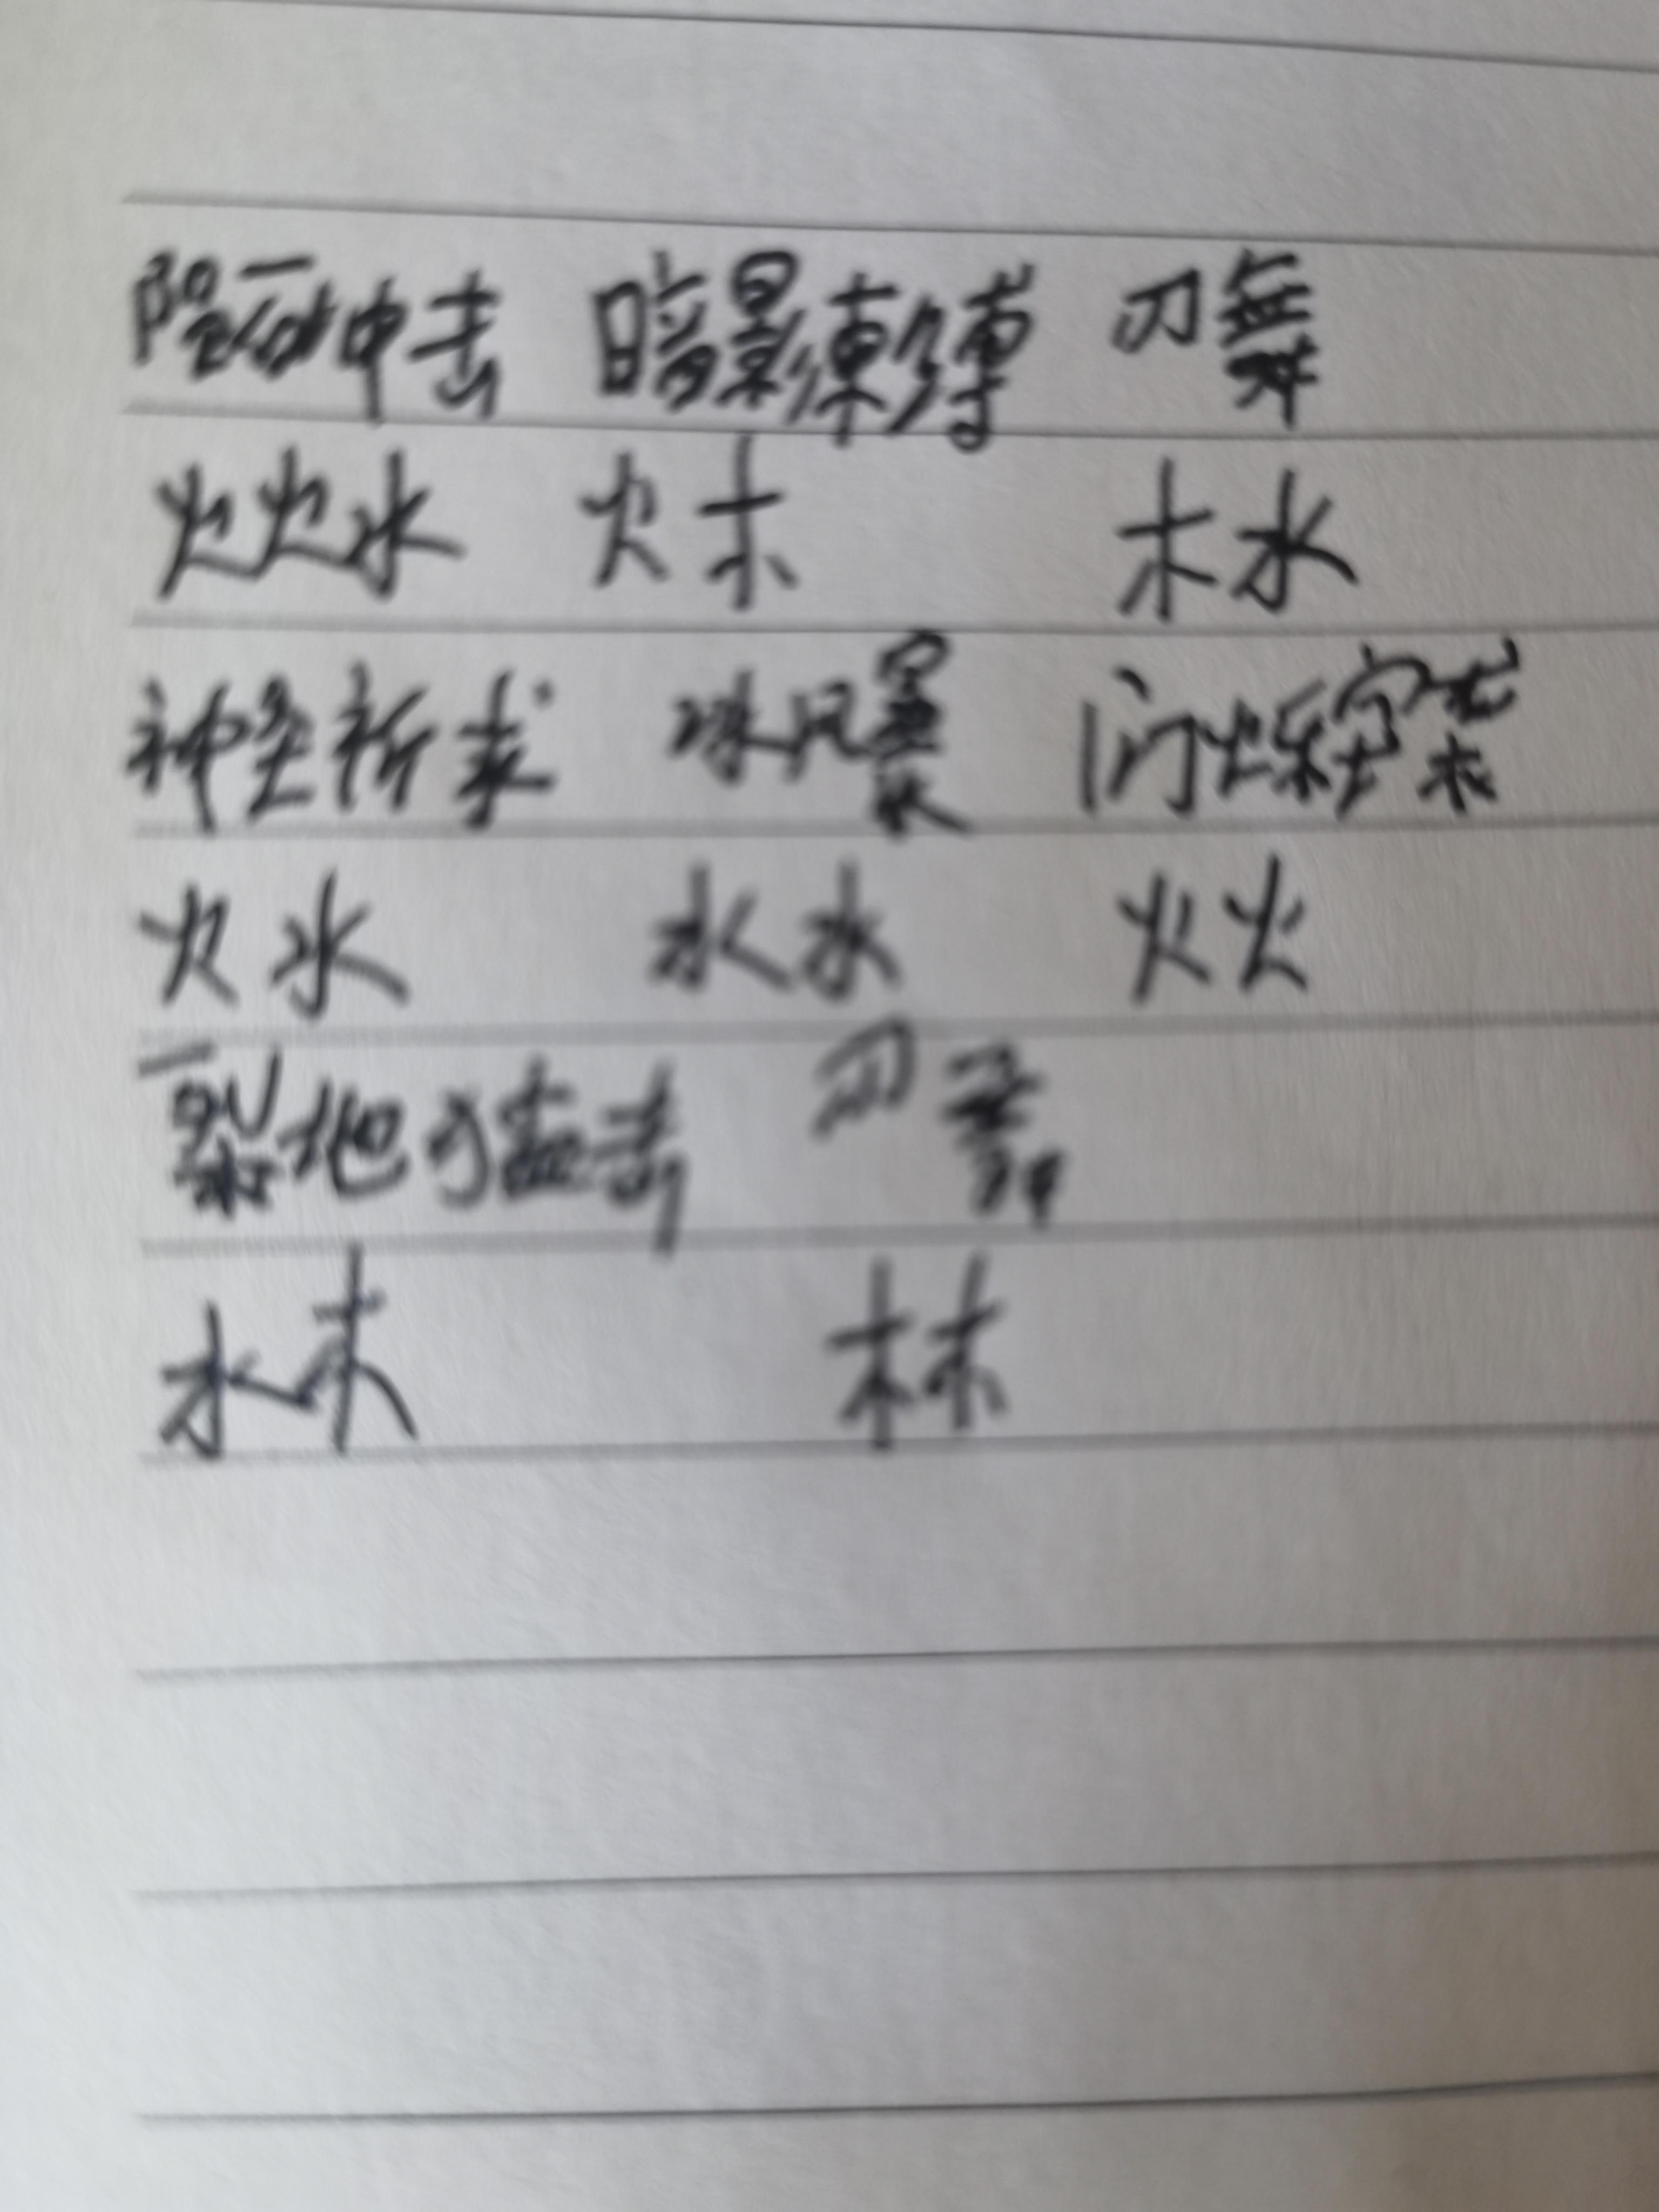 陨石冲击 暗影束缚 刃舞
火火水 火木 木水
神圣祈求 冰风暴 闪烁突袭
火水 水水 火火
裂地猛击 刃
水木 木木